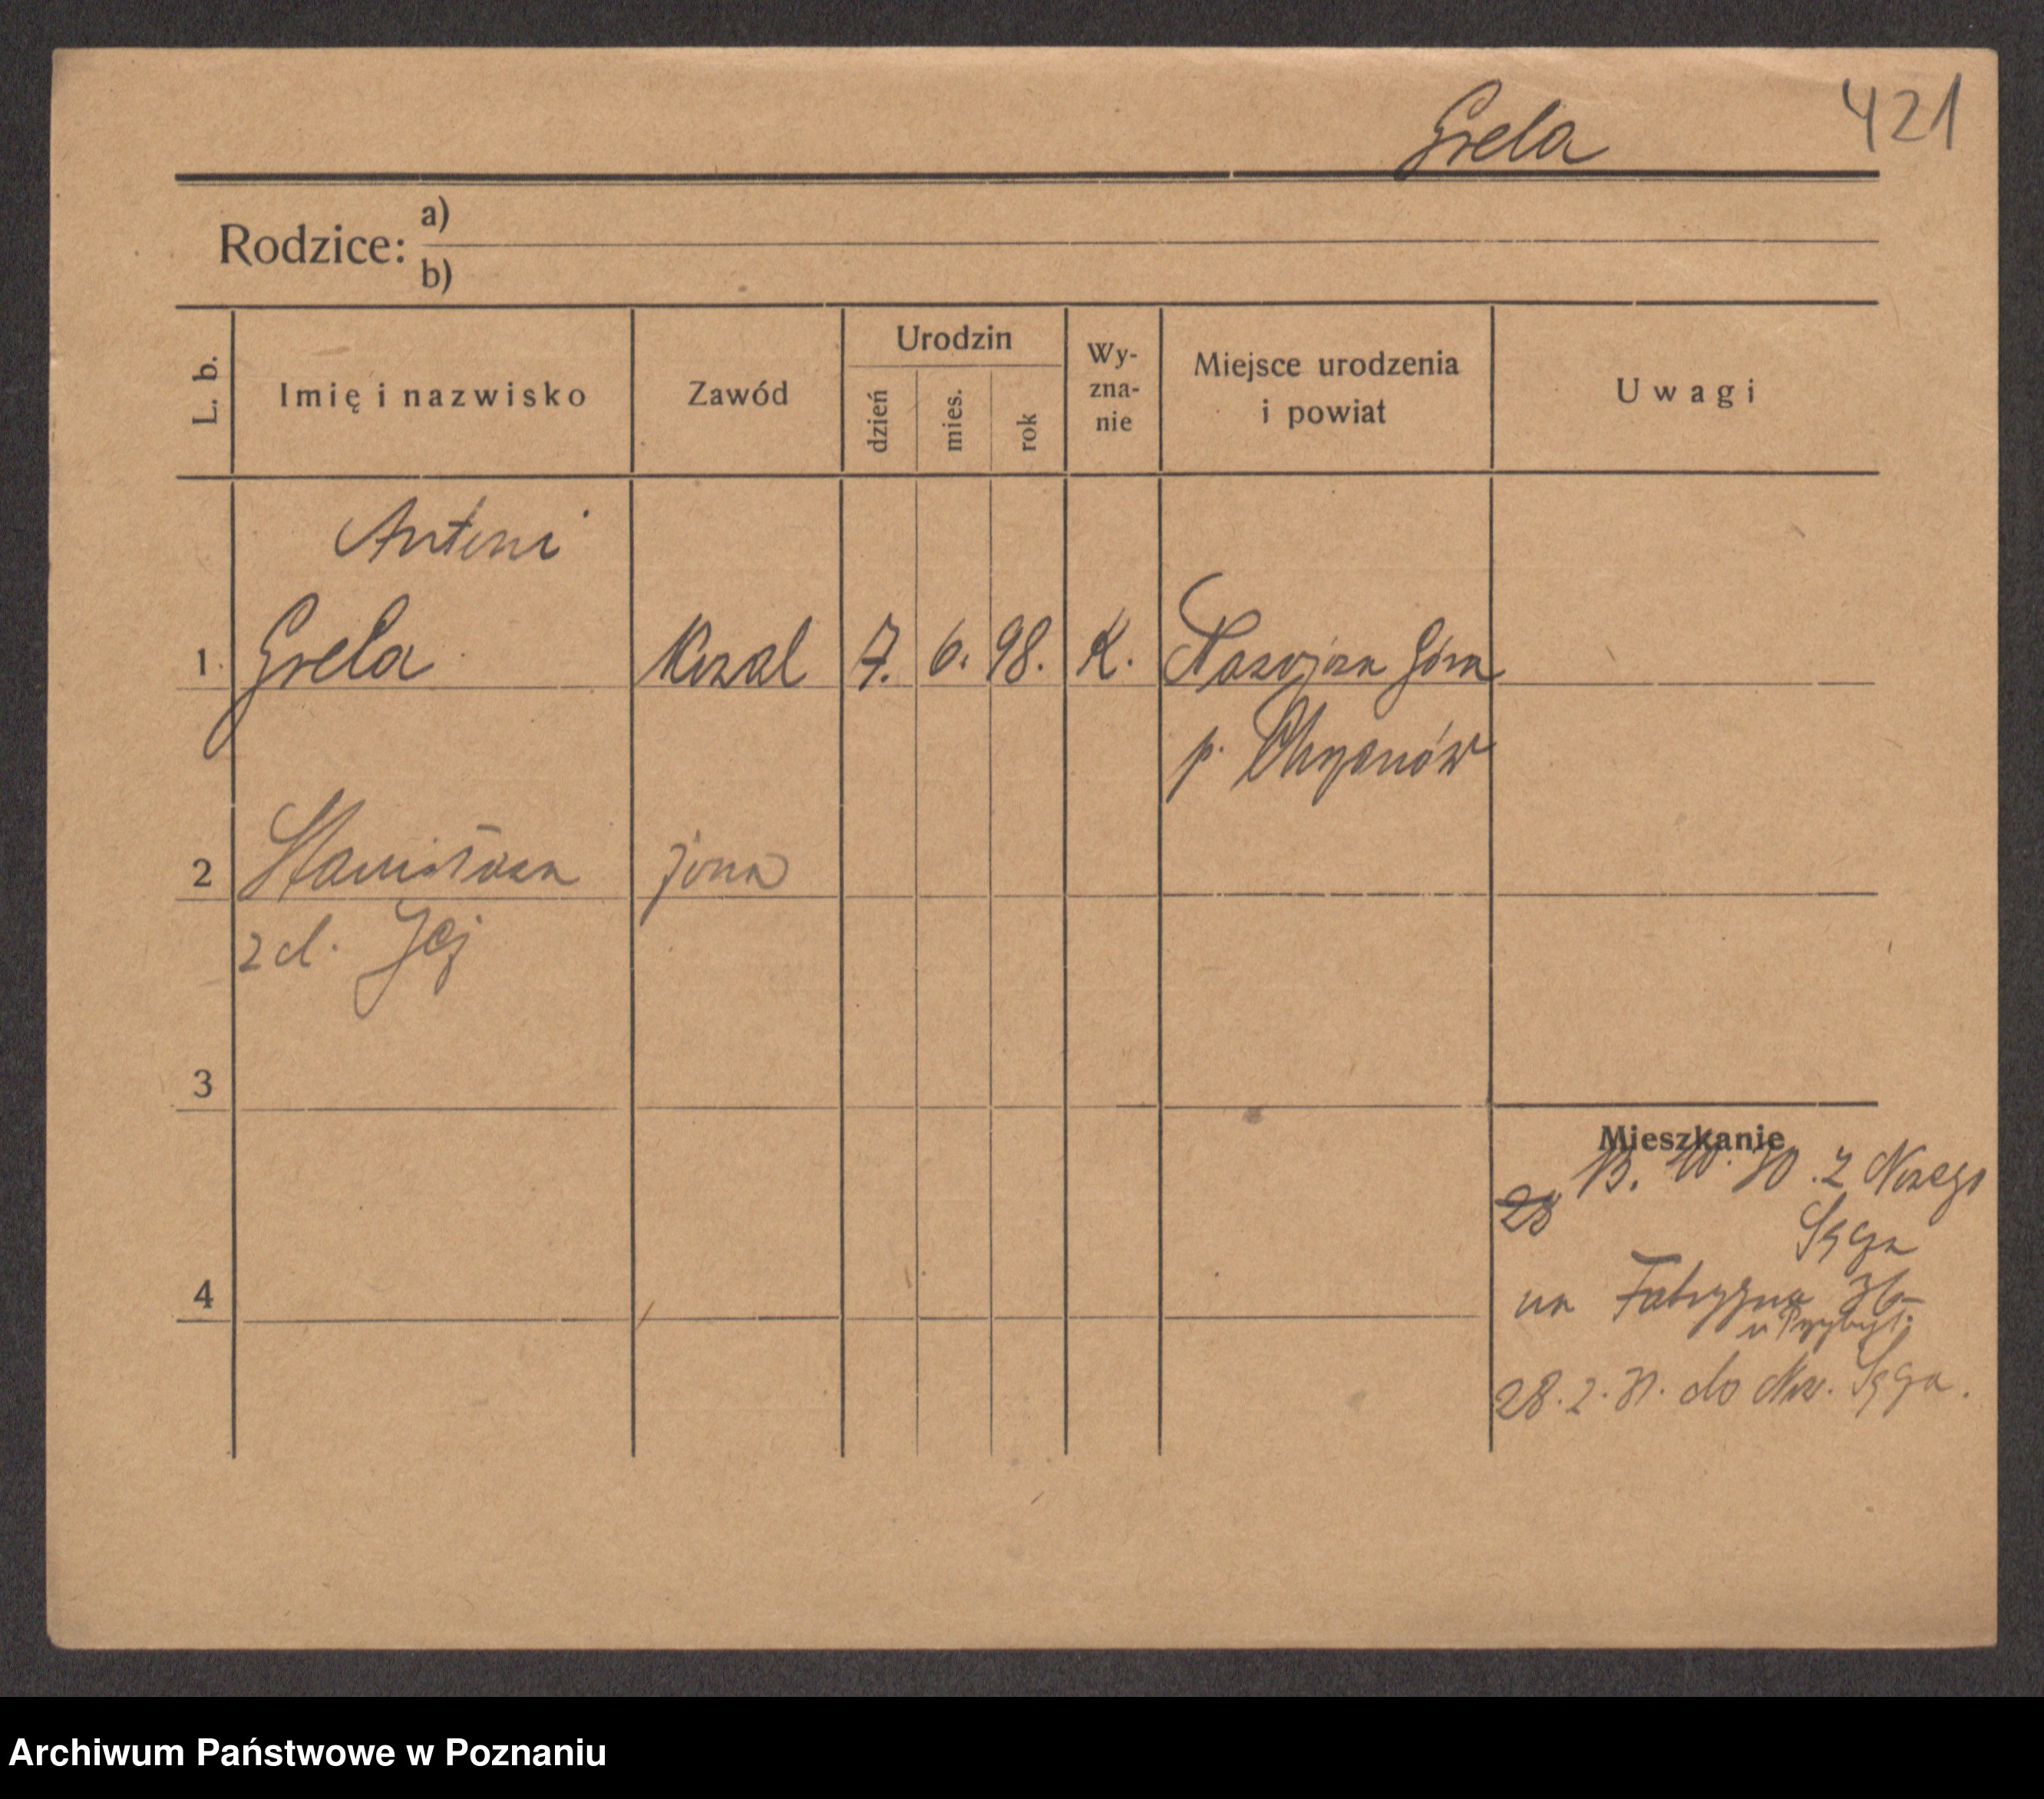 Grela 421
Rodzice: a)
b)
L. b. Imię i nazwisko Zawód Urodzin dzień mies. rok Wy-zna-nie Miejsce urodzenia i powiat Uwagi
Antoni
1. Grela Kowal 7. 6. 98. K. Góra
p. Chrzanów
2 Stanisława żona
z d. Jej
3
Mieszkanie
28 13. 10. 30. z Nowego
Sącza
4
na Fabryczna 36
u Przybył.
28. 2. 31. do Now. Sącza.
Archiwum Państwowe w Poznaniu